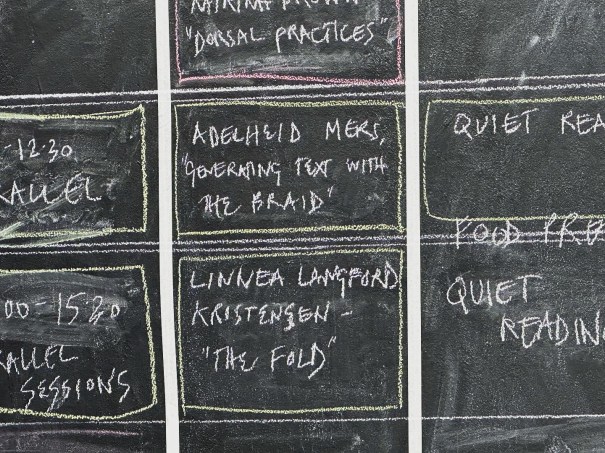 "DORSAL PRACTICES"
-12.30
ADELHEID MERS,
"GENERATING TEXT WITH
THE BRAID"
QUIET REA
FOOD PREP
00-15.30
SESSIONS
LINNEA LANGFORD
KRISTENSEN -
"THE FOLD"
QUIET
READING